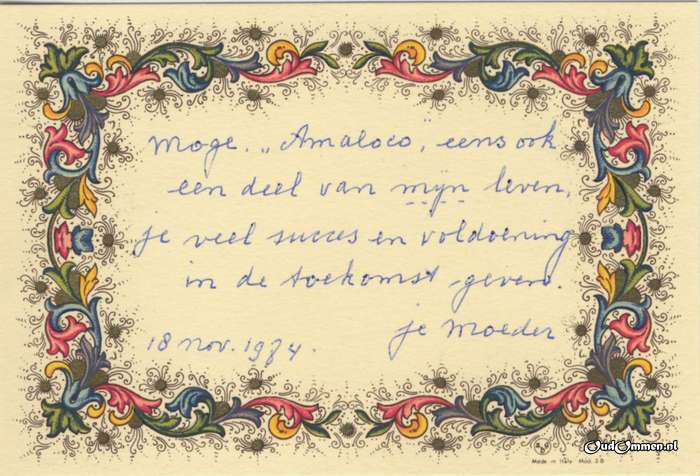 Moge „Amaloco„ eens ook
een deel van mijn leven,
je veel succes en voldoening
in de toekomst geven.
je Moeder
18 nov. 1984.
Made in Italy Mod. 56
OudOmmen.nl